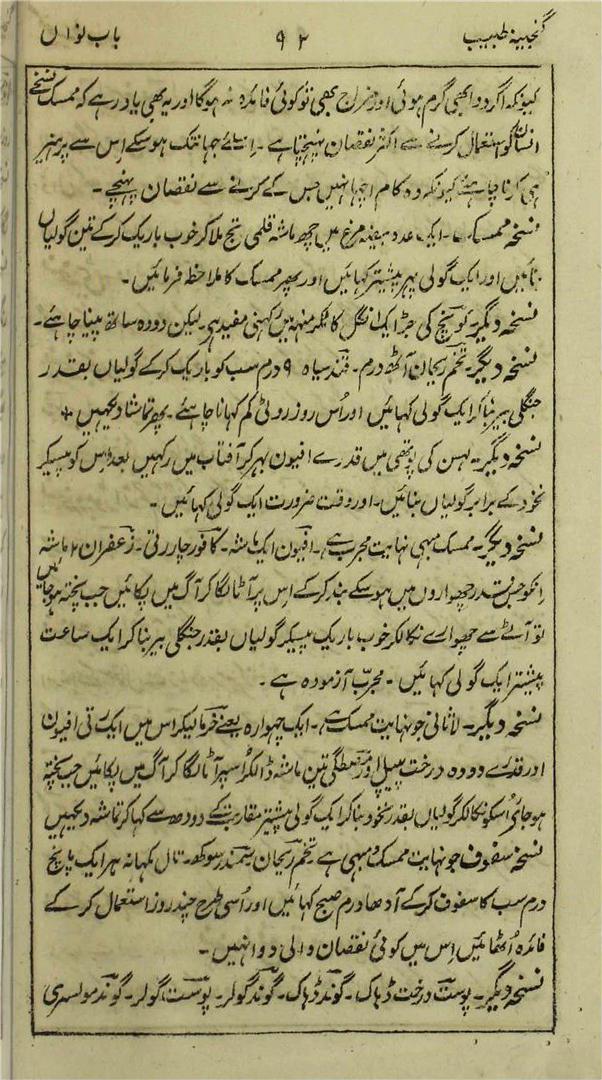 گنجینۂ طبیب ۹۲ باب نواں
کیونکہ اگر دوا بھی گرم ہوئی اور مزاج بھی تو کوئی فائدہ نہ ہوگا اور یہ بھی یاد رہے کہ ممسک نسخے
انسان کو استعمال کرنے سے اکثر نقصان پہنچتا ہے۔ اسلئے جہانتک ہوسکے اس سے پرہیز
ہی کرنا چاہئے کیونکہ وہ کام اچھا نہیں جس کے کرنے سے نقصان پہنچے۔
نسخہ ممسک۔ ایک عدد بیضہ مرغ میں چھ ماشہ قلمی تج ملاکر خوب باریک کرکے تین گولیاں
بنائیں اور ایک گولی پہر پیشتر کہائیں اور پھر ممسک کا ملاحظہ فرمائیں۔
نسخہ دیگر۔ کونچ کی جڑ ایک انگل کا ٹکر منہہ میں رکہنی مفید ہی۔ لیکن دودہ ساتھ پینا چاہئے۔
نسخہ دیگر۔ تخم ریحان آٹھ درم۔ قند سیاہ ۹ درم سب کو باریک کرکے گولیاں بقدر
جنگلی بیر بناکر ایک گولی کہائیں اور اُس روز روٹی کم کہانا چاہئے۔ پھر تماشا دیکہیں +
نسخہ دیگر۔ لہسن کی پوتھی میں قدرے افیون بہر کر آفتاب میں رکہیں بعد اس کو پیسکر
نخود کے برابر گولیاں بنائیں۔ اور وقت ضرورت ایک گولی کہائیں۔
نسخہ دیگر۔ ممسک مبہی نہایت مجرب ہے۔ افیون ایک ماشہ۔ کافور چار رتی۔ زعفران ۲ ماشہ
انکو جس قدر چھواروں میں ہوسکے بند کرکے اس پر آٹا لگا کر آگ میں پکائیں جب پختہ ہوجائیں
تو آٹے سے چھوارے نکالکر خوب باریک پیسکر گولیاں بقدر جنگلی بیر بنا کر ایک ساعت
پیشتر ایک گولی کہائیں۔ مجرّب آزمودہ ہے۔
نسخہ دیگر۔ لاثانی جو نہایت ممسک ہے۔ ایک چہوارہ یعنے خرما لیکر اس میں ایک رتی افیون
اور قدرے دودہ درخت پیپل اور مصطگی تین ماشہ ڈالکر اسپر آٹا لگا کر آگ میں پکائیں جب پختہ
ہوجائے اُسکو نکالکر گولیاں بقدر نخود بنا کر ایک گولی پیشتر مقاربت کے دودھ سے کہا کر تماشہ دیکہیں
نسخہ سفوف جو نہایت ممسک و مبہی ہے تخم ریحان سمندر سوکھ۔ تال مکہانہ ہر ایک پانچ
درم سب کا سفوف کرکے آدھا درم صبح کہائیں اور اُسی طرح چند روز استعمال کرکے
فائدہ اُٹھائیں اس میں کوئی نقصان والی دوا نہیں۔
نسخہ دیگر۔ پوست درخت ڈہاک۔ گوند ڈہاک۔ گوند گولر۔ پوست گولر۔ گوند مولسری